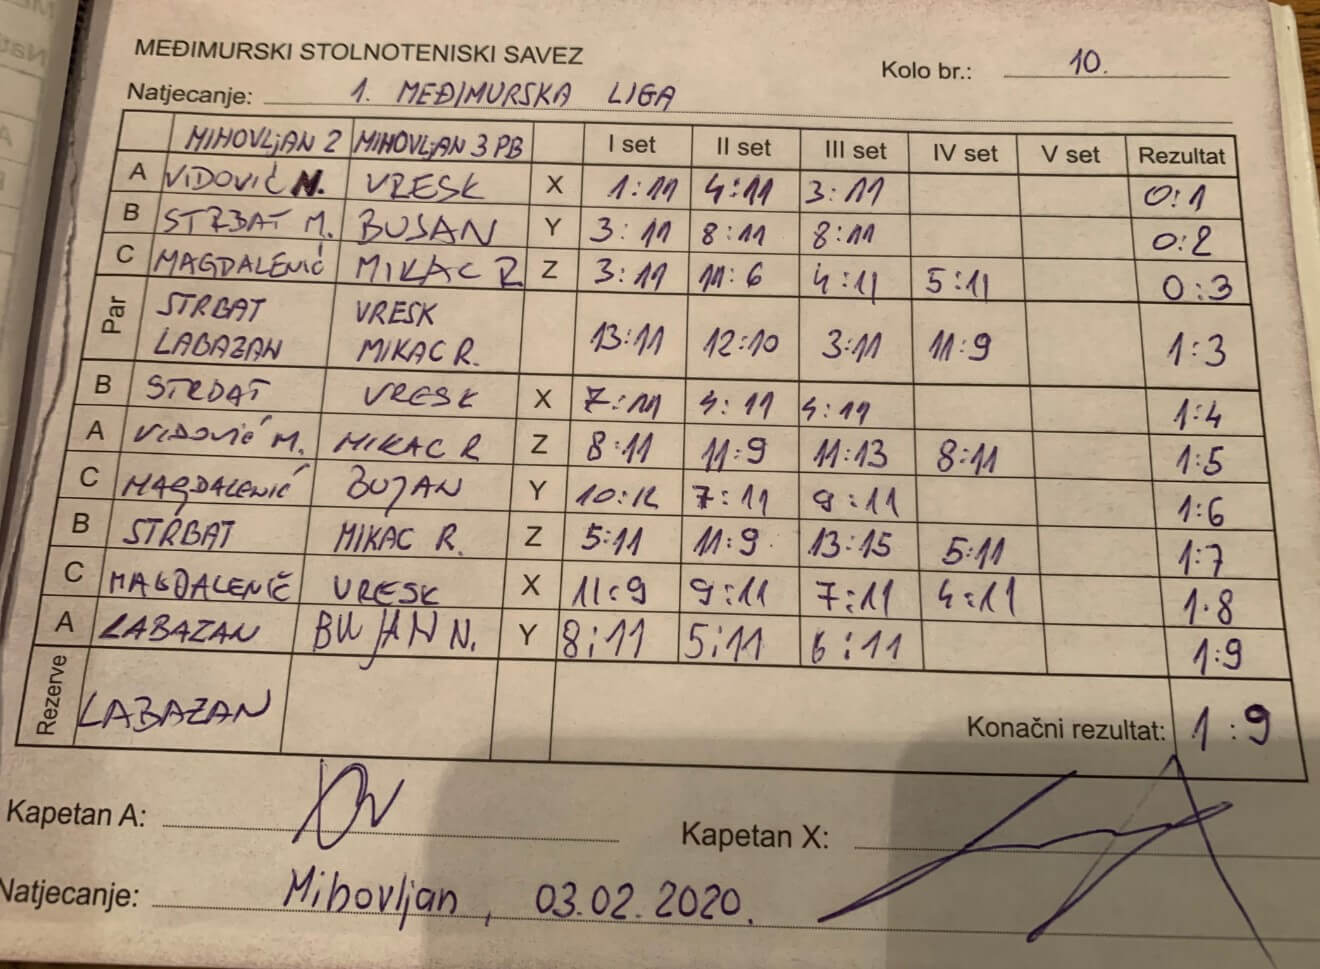 MEĐIMURSKI STOLNOTENISKI SAVEZ
Kolo br.: 10.
Natjecanje: 1. MEĐIMURSKA LIGA
MIHOVLJAN 2 MIHOVLJAN 3 PB I set II set III set IV set V set Rezultat
A VIDOVIĆ M. VRESK X 1:11 4:11 3:11 0:1
B STRBAT M. BUJAN Y 3:11 8:11 8:11 0:2
C MAGDALENIĆ MIKAC R Z 3:11 11:6 4:11 5:11 0:3
Par STRBAT LABAZAN VRESK MIKAC R. 13:11 12:10 3:11 11:9 1:3
B STRBAT VRESK X 7:11 4:11 4:11 1:4
A VIDOVIĆ M. MIKAC R Z 8:11 11:9 11:13 8:11 1:5
C MAGDALENIĆ BUJAN Y 10:12 7:11 9:11 1:6
B STRBAT MIKAC R. Z 5:11 11:9 13:15 5:11 1:7
C MAGDALENIĆ VRESK X 11:9 9:11 7:11 4:11 1:8
A LABAZAN BUJAN N. Y 8:11 5:11 6:11 1:9
Rezerve LABAZAN Konačni rezultat: 1:9
Kapetan A: Kapetan X:
Natjecanje: Mihovljan, 03.02.2020.